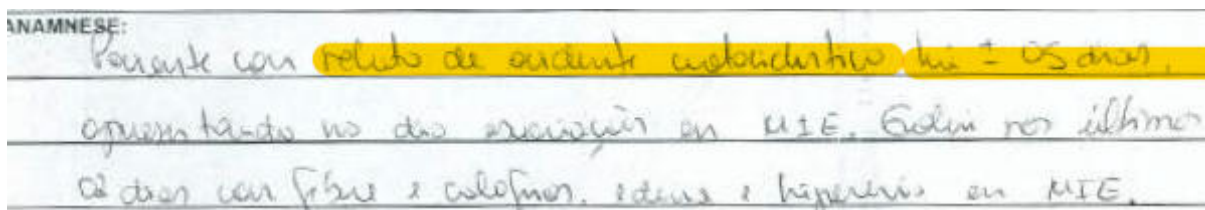 ANAMNESE:
Paciente com relato de acidente motociclistico há ± 05 dias,
apresentando no dia escoriações em MIE. Evolui nos últimos
02 dias com febre e calafrios, edema e hiperemia em MIE.